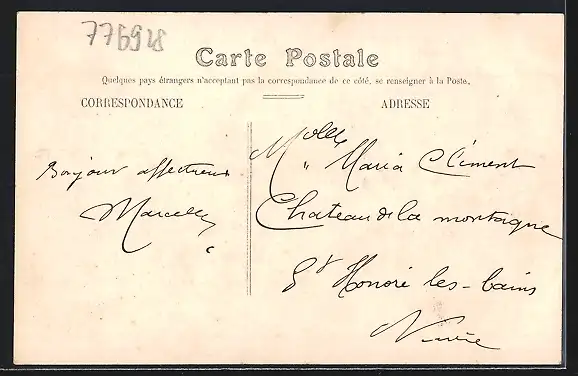 776928
Carte Postale
Quelques pays étrangers n'acceptant pas la correspondance de ce côté, se renseigner à la Poste.
CORRESPONDANCE
ADRESSE
Bonjour affectueux
Marcelle
Melle
" Maria Clément
Chateau de la montagne
St Honoré les-bains
Nièvre